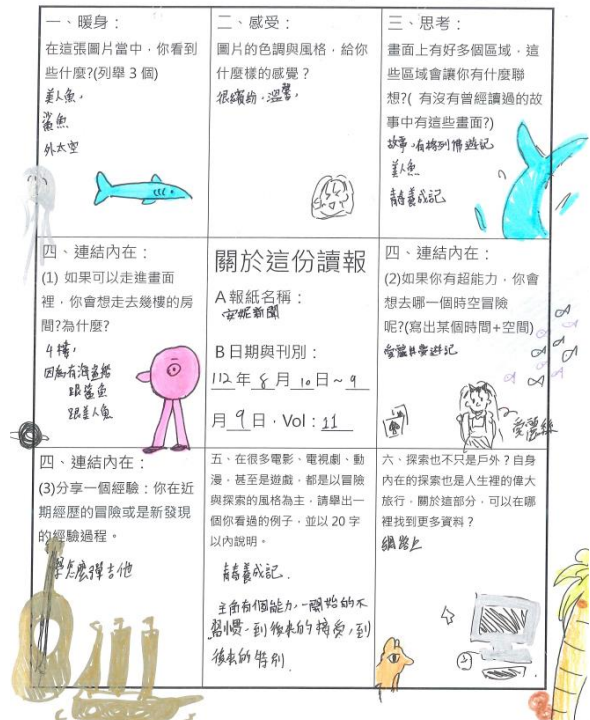 一、暖身：
在這張圖片當中，你看到
些什麼?(列舉 3 個)
美人魚，
鯊魚
外太空
二、感受：
圖片的色調與風格，給你
什麼樣的感覺？
很繽紛、溫馨，
三、思考：
畫面上有好多個區域，這
些區域會讓你有什麼聯
想?( 有沒有曾經讀過的故
事中有這些畫面?)
故事，有格列佛遊記
美人魚
養成記
四、連結內在：
(1) 如果可以走進畫面
裡，你會想走去幾樓的房
間?為什麼?
4樓，
因為有海盜船
跟鯊魚
跟美人魚
關於這份讀報
A 報紙名稱：
安妮新聞
B 日期與刊別：
112 年 8 月 10 日~ 9
月 9 日，Vol：11
四、連結內在：
(2)如果你有超能力，你會
想去哪一個時空冒險
呢?(寫出某個時間+空間)
愛麗絲夢遊記
愛麗絲
四、連結內在：
(3)分享一個經驗：你在近
期經歷的冒險或是新發現
的經驗過程。
學怎麼彈吉他
五、在很多電影、電視劇、動
漫，甚至是遊戲，都是以冒險
與探索的風格為主，請舉出一
個你看過的例子，並以 20 字
以內說明。
養成記.
主角有個能力,一開始的不
習慣,到後來的接受,到
後來的特別.
六、探索也不只是戶外？自身
內在的探索也是人生裡的偉大
旅行，關於這部分，可以在哪
裡找到更多資料？
網路上